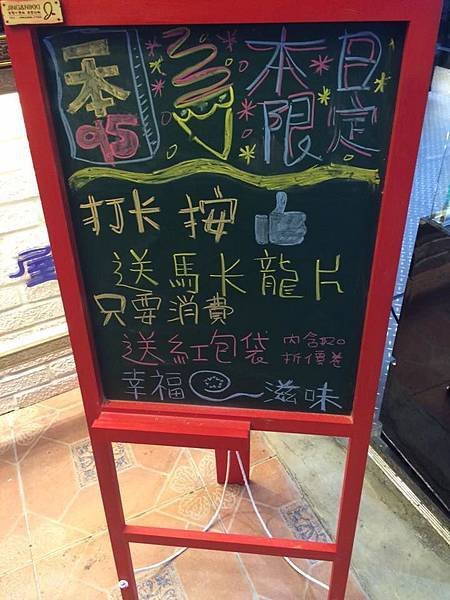 JING&NIKKI
一本
95
本日
限定
打卡 按
送馬卡龍片
只要消費
送紅包袋 內含
折價卷
幸福 滋味